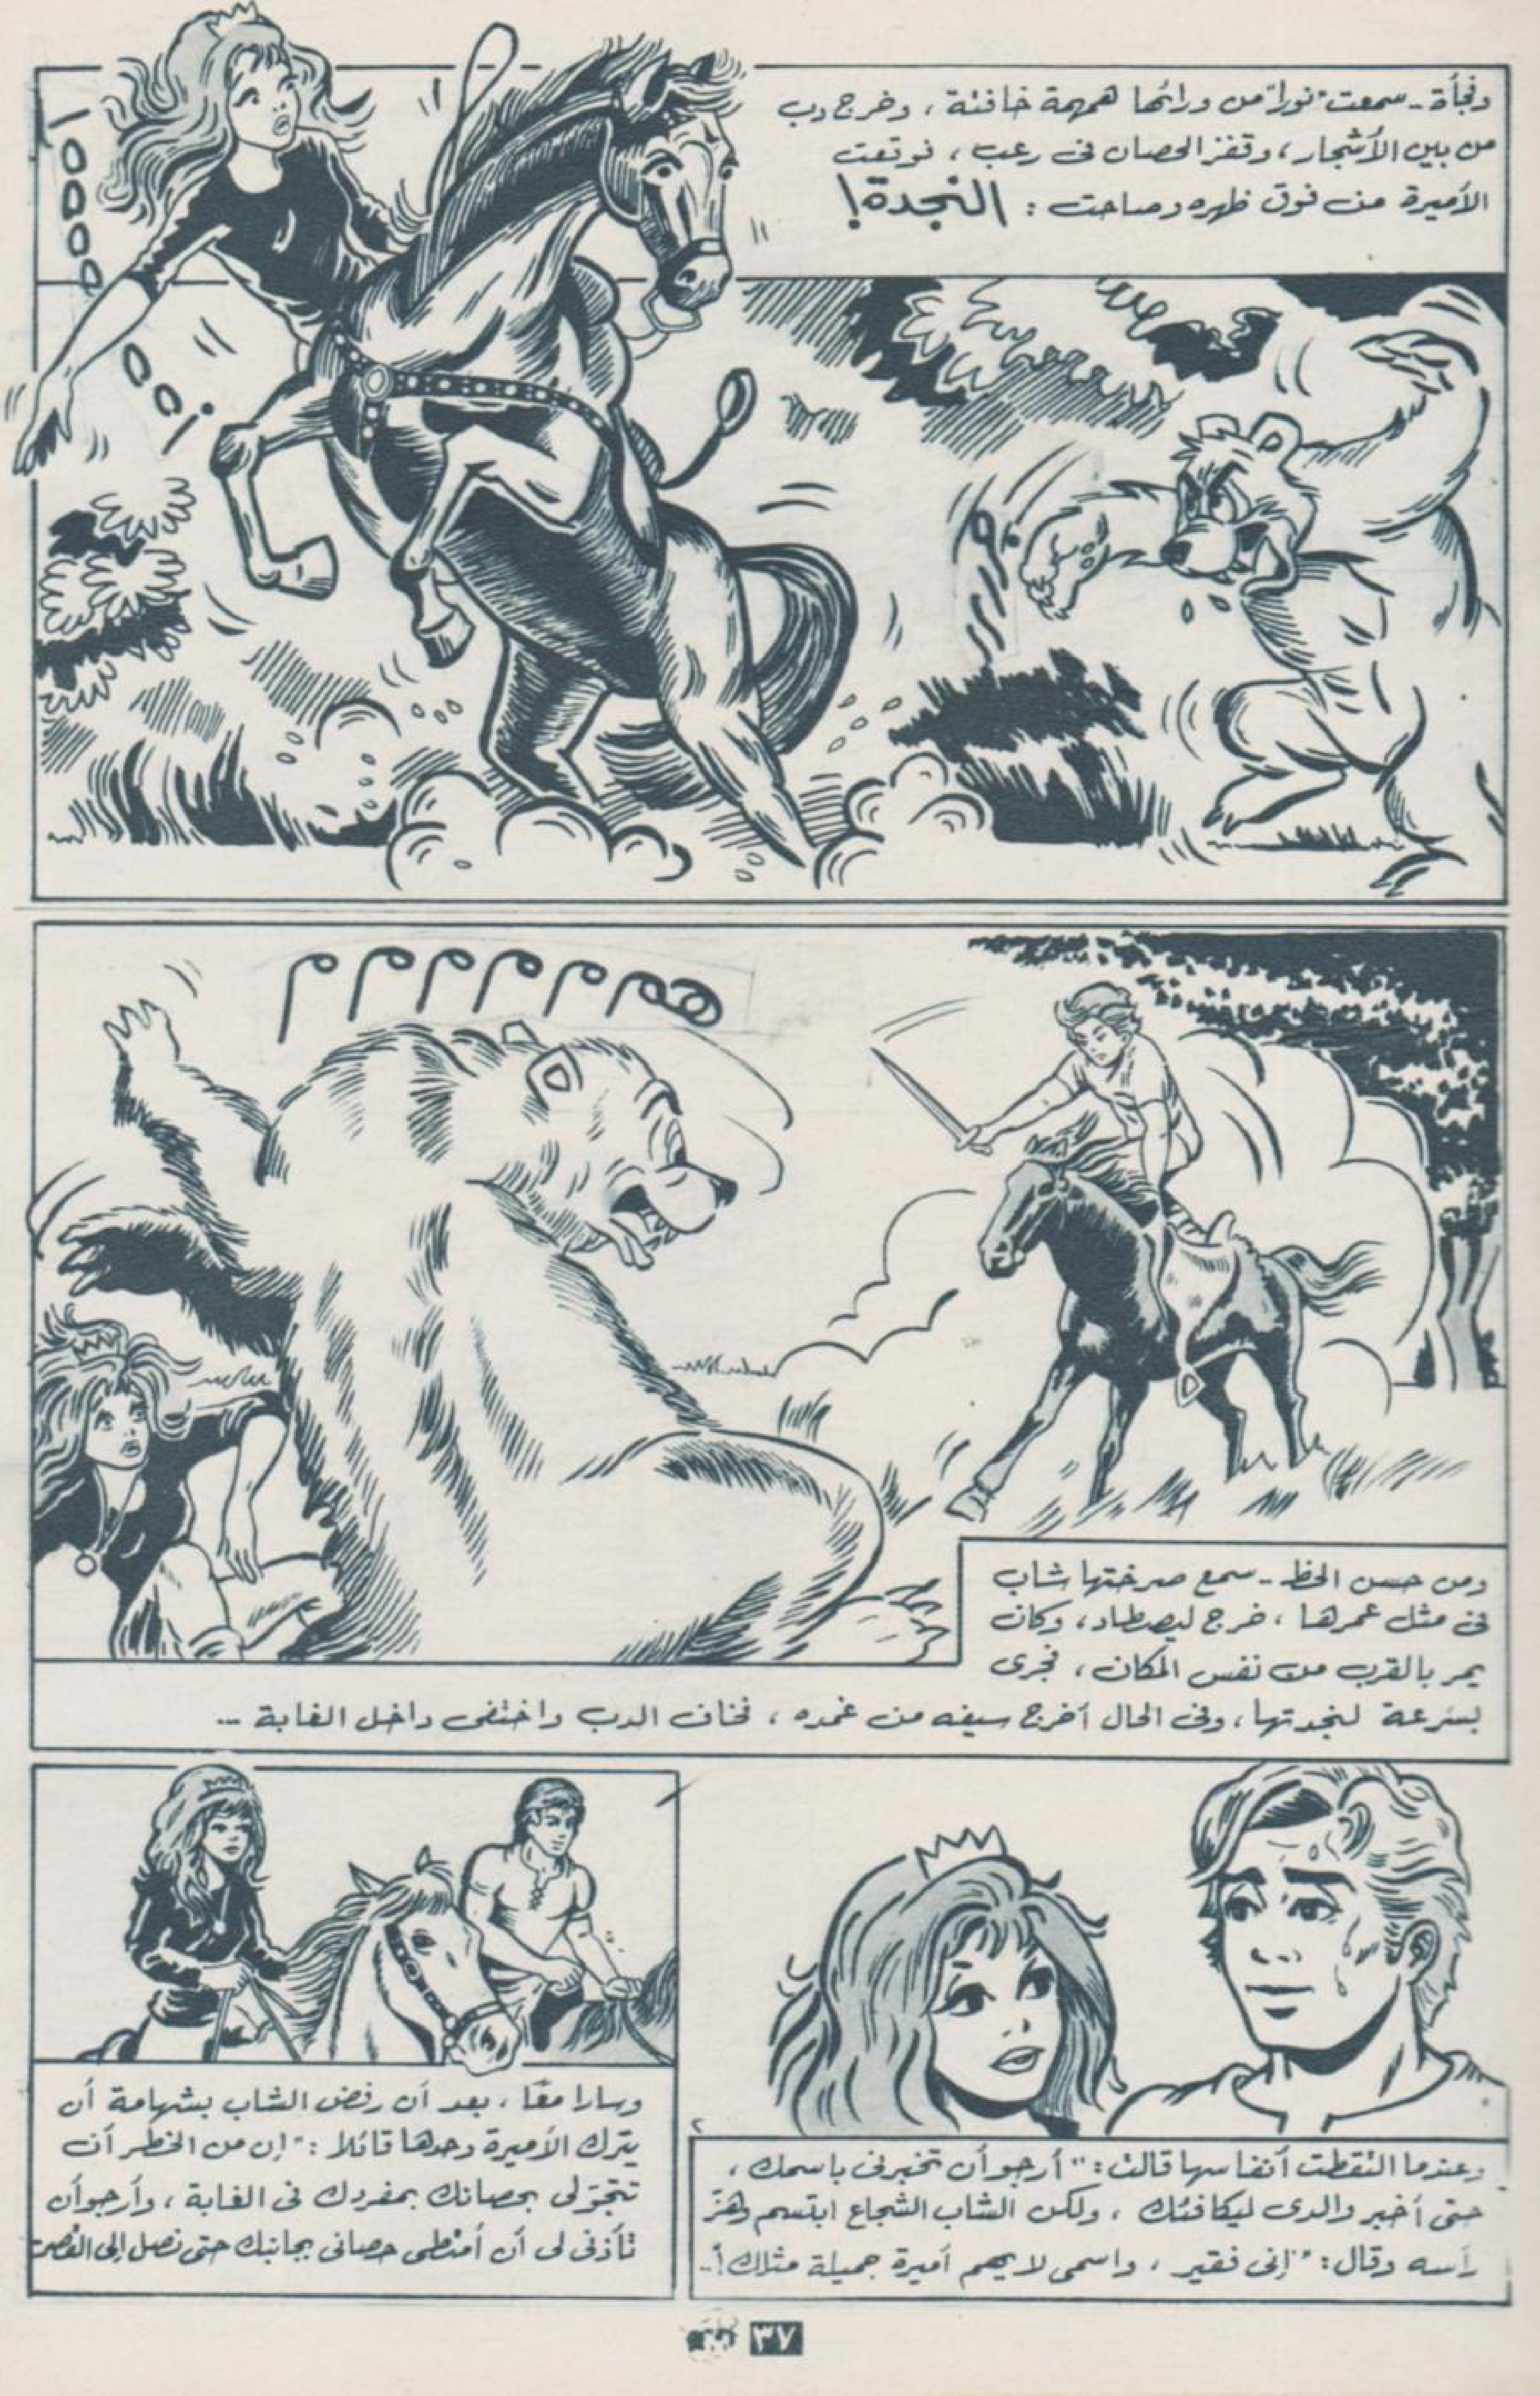 وفجأة - سمعت "نورا" من ورائها همهمة خافتة ، وخرج دب
من بين الأشجار ، وقفز الحصان فى رعب ، فوقعت
الأميرة من فوق ظهره وصاحت : النجدة !
ومن حسن الحظ - سمع صرختها شاب
فى مثل عمرها ، خرج ليصطاد ، وكان
يمر بالقرب من نفس المكان ، فجرى
بسرعة لنجدتها ، وفى الحال أخرج سيفه من غمده ، فخاف الدب واختفى داخل الغابة ...
وعندما التقطت أنفاسها قالت : " أرجو أن تخبرنى باسمك ،
حتى أخبر والدى ليكافئك ، ولكن الشاب الشجاع ابتسم وهز
رأسه وقال : " إنى فقير ، واسمى لا يهم أميرة جميلة مثلك ! ..
وسارا معًا ، بعد أن رفض الشاب بشهامة أن
يترك الأميرة وحدها قائلا : " إن من الخطر أن
تتجولى بحصانك بمفردك فى الغابة ، وأرجو أن
تأذنى لى أن أمتطى حصانى بجانبك حتى نصل إلى القصر
٣٧